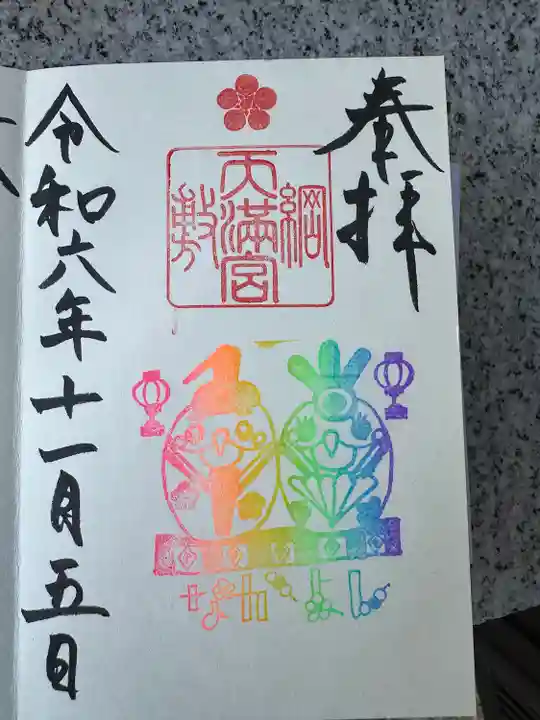 奉拝
綱
天満宮
敷
なかよし
令和六年十一月五日